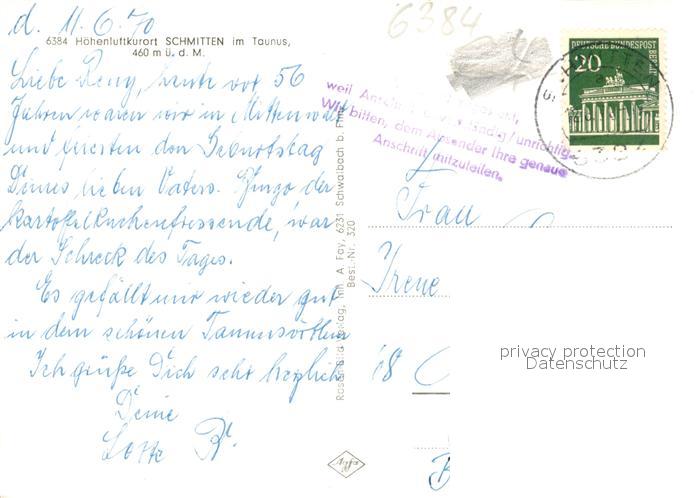 d. 11.6.70
6384
6384 Höhenluftkurort SCHMITTEN im Taunus,
460 m ü. d. M.
Liebe Reny, heute vor 56
Jahren waren wir in Mittenwalt
und feierten den Geburtstag
Deines lieben Vaters. Jngo der
kartoffelkuchenfressende, war
der Schreck des Tages.
Es gefällt mir wieder gut
in dem schönen Taunusörtlein
Ich grüße Dich sehr herzlich
Deine
Lotte R.
DEUTSCHE BUNDESPOST
BERLIN
20
weil
unrichtig.
Wir bitten, dem Absender Ihre genaue
Anschrift mitzuteilen.
Inh. A. Fay, 6231 Schwalbach b. Ffm.
Best.-Nr. 320
Frau
Irene
privacy protection
Datenschutz
Agfa